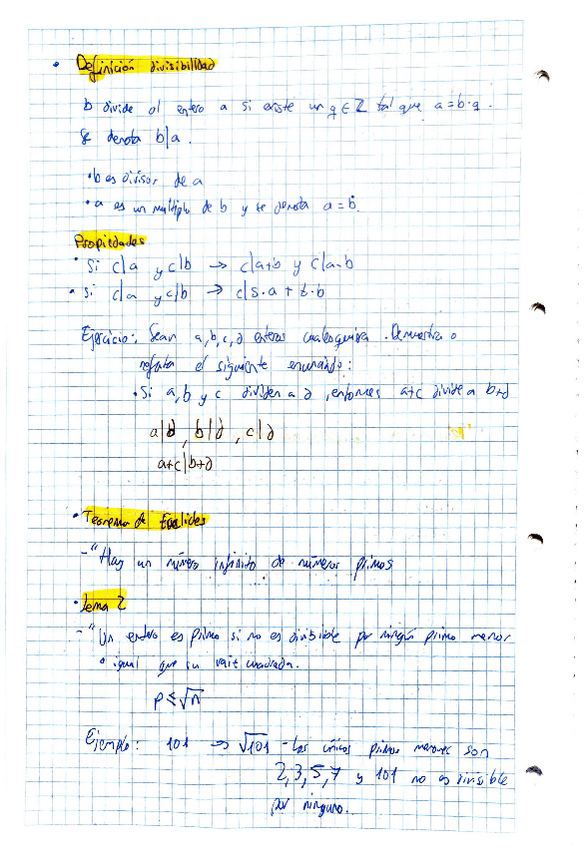 • Definición divisibilidad
b divide al entero a si existe un q ∈ Z tal que a = b·q.
Se denota b|a.
• b es divisor de a
• a es un multiplo de b y se denota a = ḃ.
Propiedades
• Si c|a y c|b → c|a+b y c|a-b
• Si c|a y c|b → c|s·a + t·b
Ejercicio: Sean a,b,c,d enteros cualesquiera. Demuestra o
refuta el siguiente enunciado:
• Si a, b y c dividen a d, entonces a+c divide a b+d
a|d, b|d, c|d
a+c|b+d
• Teorema de Euclides
- "Hay un número infinito de números primos
• Lema 2
- "Un entero es primo si no es divisible por ningún primo menor
o igual que su raiz cuadrada.
p ≤ √n
Ejemplo: 101 → √101 - Los únicos primos menores son
2, 3, 5, 7 y 101 no es divisible
por ninguno.